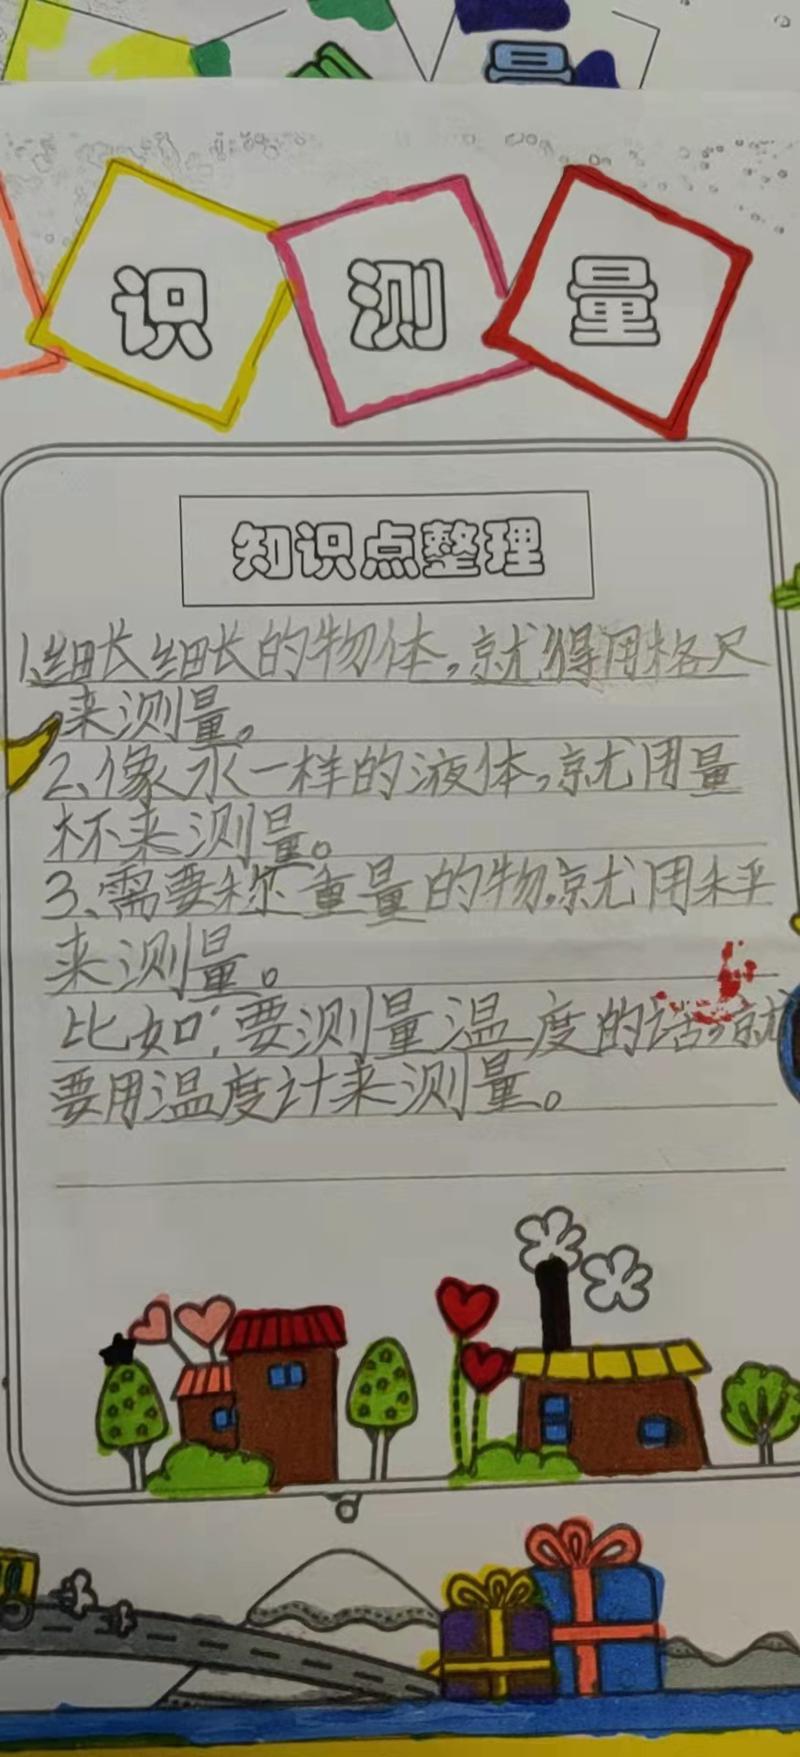 识 测 量
知识点整理
1、细长细长的物体,就得用格尺
来测量。
2、像水一样的液体,就用量
杯来测量。
3、需要称重量的物,就用秤
来测量。
比如:要测量温度的话,就
要用温度计来测量。